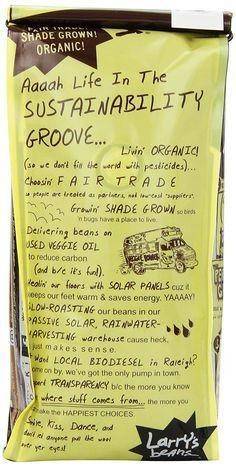 FAIR TRADE!
SHADE GROWN!
ORGANIC!
Aaaah Life In The
SUSTAINABILITY
GROOVE...
Livin' ORGANIC!
(so we don't fill the world with pesticides)...
Choosin' FAIR TRADE
so people are treated as partners, not low-cost 'suppliers'.
Growin' SHADE GROWN so birds
'n bugs have a place to live.
Delivering beans on
USED VEGGIE OIL
to reduce carbon
(and b/c it's fun).
Heatin' our floors with SOLAR PANELS cuz it
keeps our feet warm & saves energy. YAAAAY!
SLOW-ROASTING our beans in our
PASSIVE SOLAR, RAINWATER-
HARVESTING warehouse cause heck,
just makes sense.
Want LOCAL BIODIESEL in Raleigh?
Come on by, we've got the only pump in town.
TRANSPARENCY b/c the more you know
where stuff comes from... the more you
make the HAPPIEST CHOICES.
Kiss, Dance, and
don't let anyone pull the wool
over yer eyes!
Larry's
beans